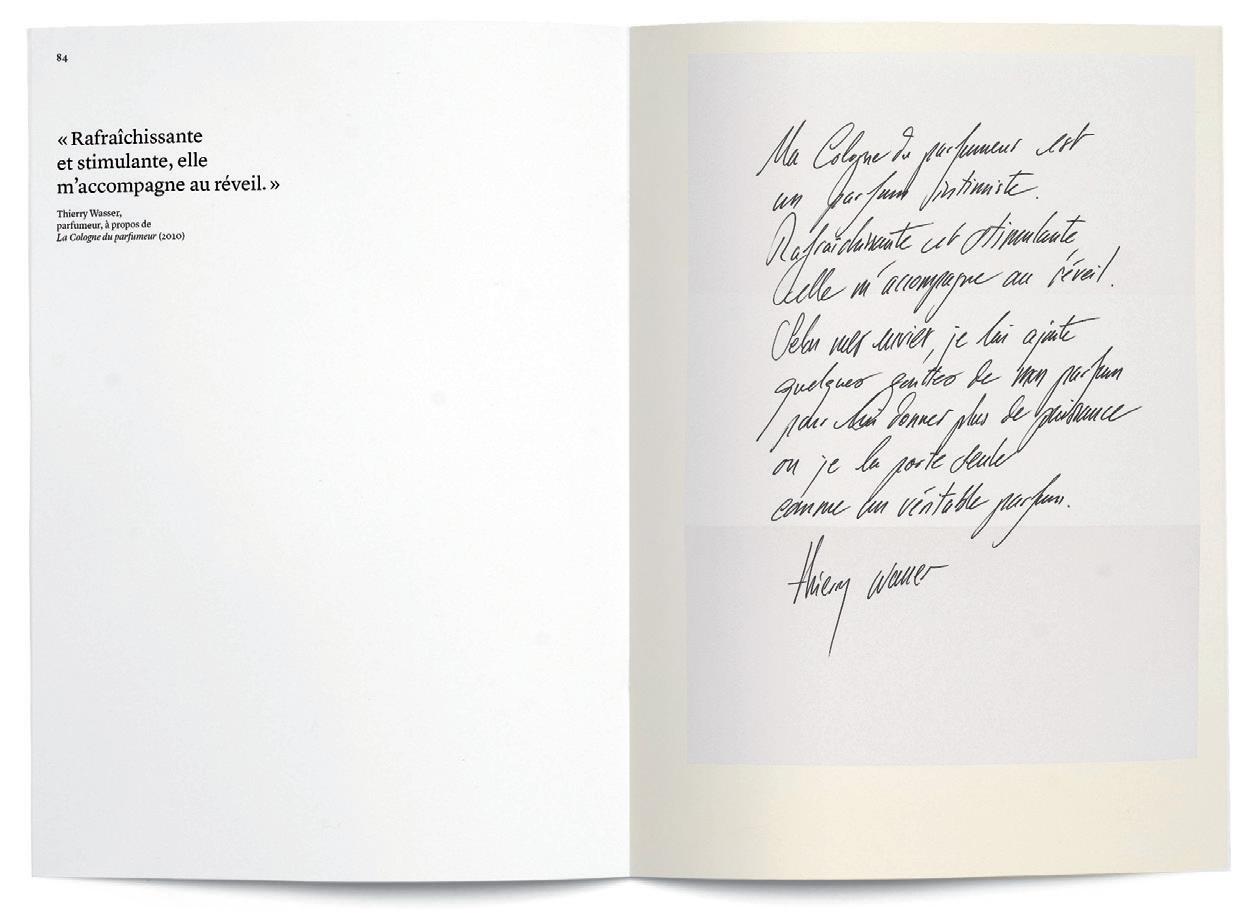 84
« Rafraîchissante
et stimulante, elle
m’accompagne au réveil. »
Thierry Wasser,
parfumeur, à propos de
La Cologne du parfumeur (2010)
Ma Cologne du parfumeur est
un parfum intimiste.
Rafraîchissante et stimulante
elle m'accompagne au réveil.
Selon mes envies, je lui ajoute
quelques gouttes de mon parfum
pour lui donner plus de puissance
ou je la porte seule
comme un véritable parfum.
Thierry Wasser